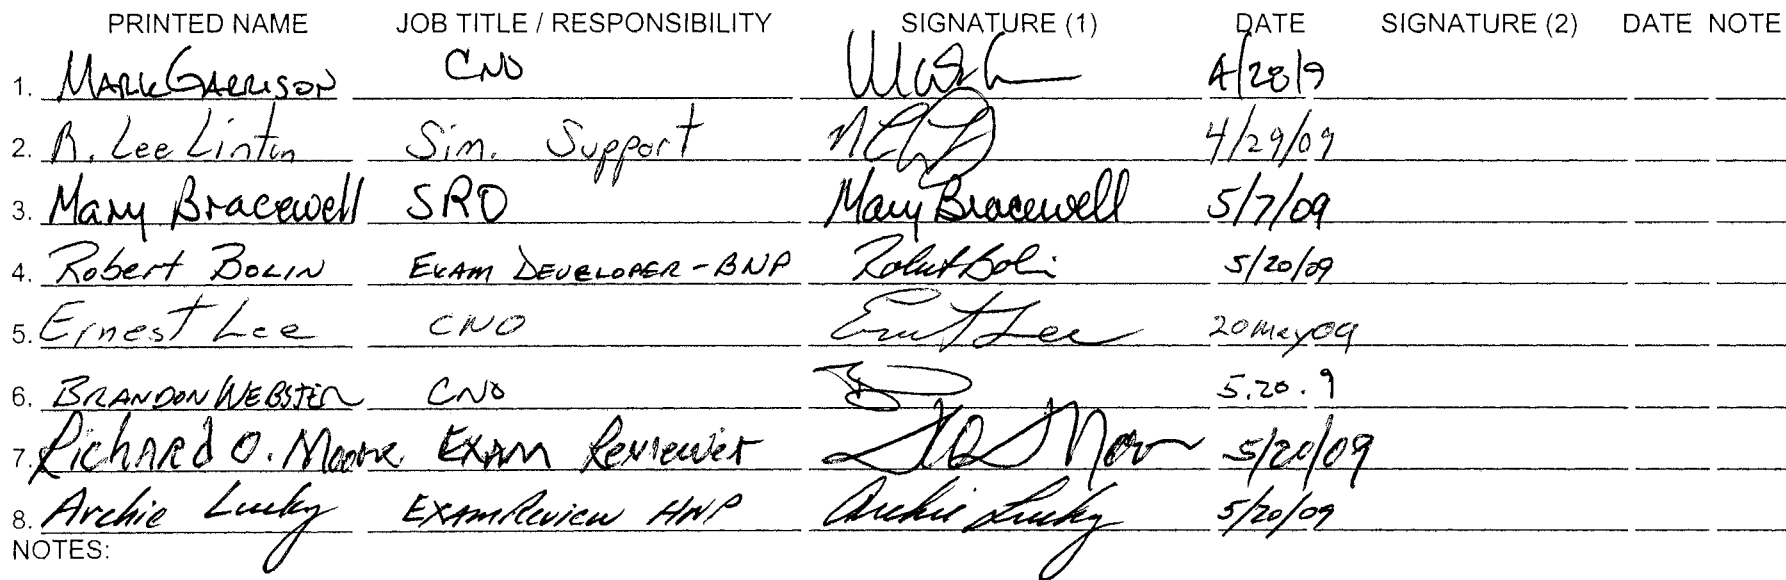 PRINTED NAME JOB TITLE / RESPONSIBILITY SIGNATURE (1) DATE SIGNATURE (2) DATE NOTE
1. MARK GARRISON CNO 4/28/9
2. R. Lee Linton Sim. Support 4/29/09
3. Mary Bracewell SRO Mary Bracewell 5/7/09
4. Robert BOLIN EXAM DEVELOPER - BNP Robert Bolin 5/20/09
5. Ernest Lee CNO Ernest Lee 20 May 09
6. BRANDON WEBSTER CNO 5.20.9
7. Richard O. Moore EXAM Reviewer 5/20/09
8. Archie Lucky EXAM Review HNP Archie Lucky 5/20/09
NOTES: